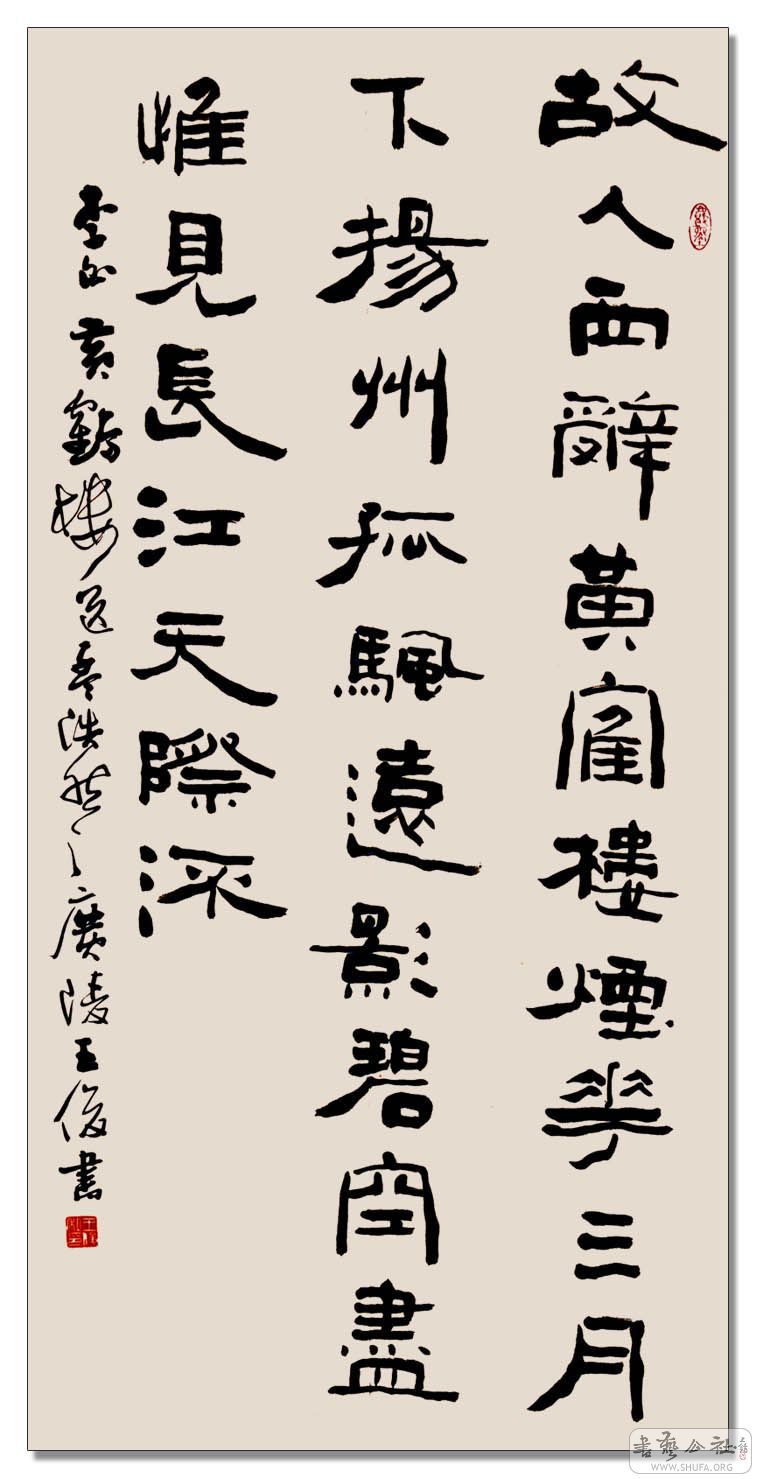 故人西辭黃隺樓煙華三月
下揚州孤颿遠影碧空盡
惟見長江天際流
李白黃鶴樓送孟浩然之廣陵王俊書
书艺公社
WWW.SHUFA.ORG